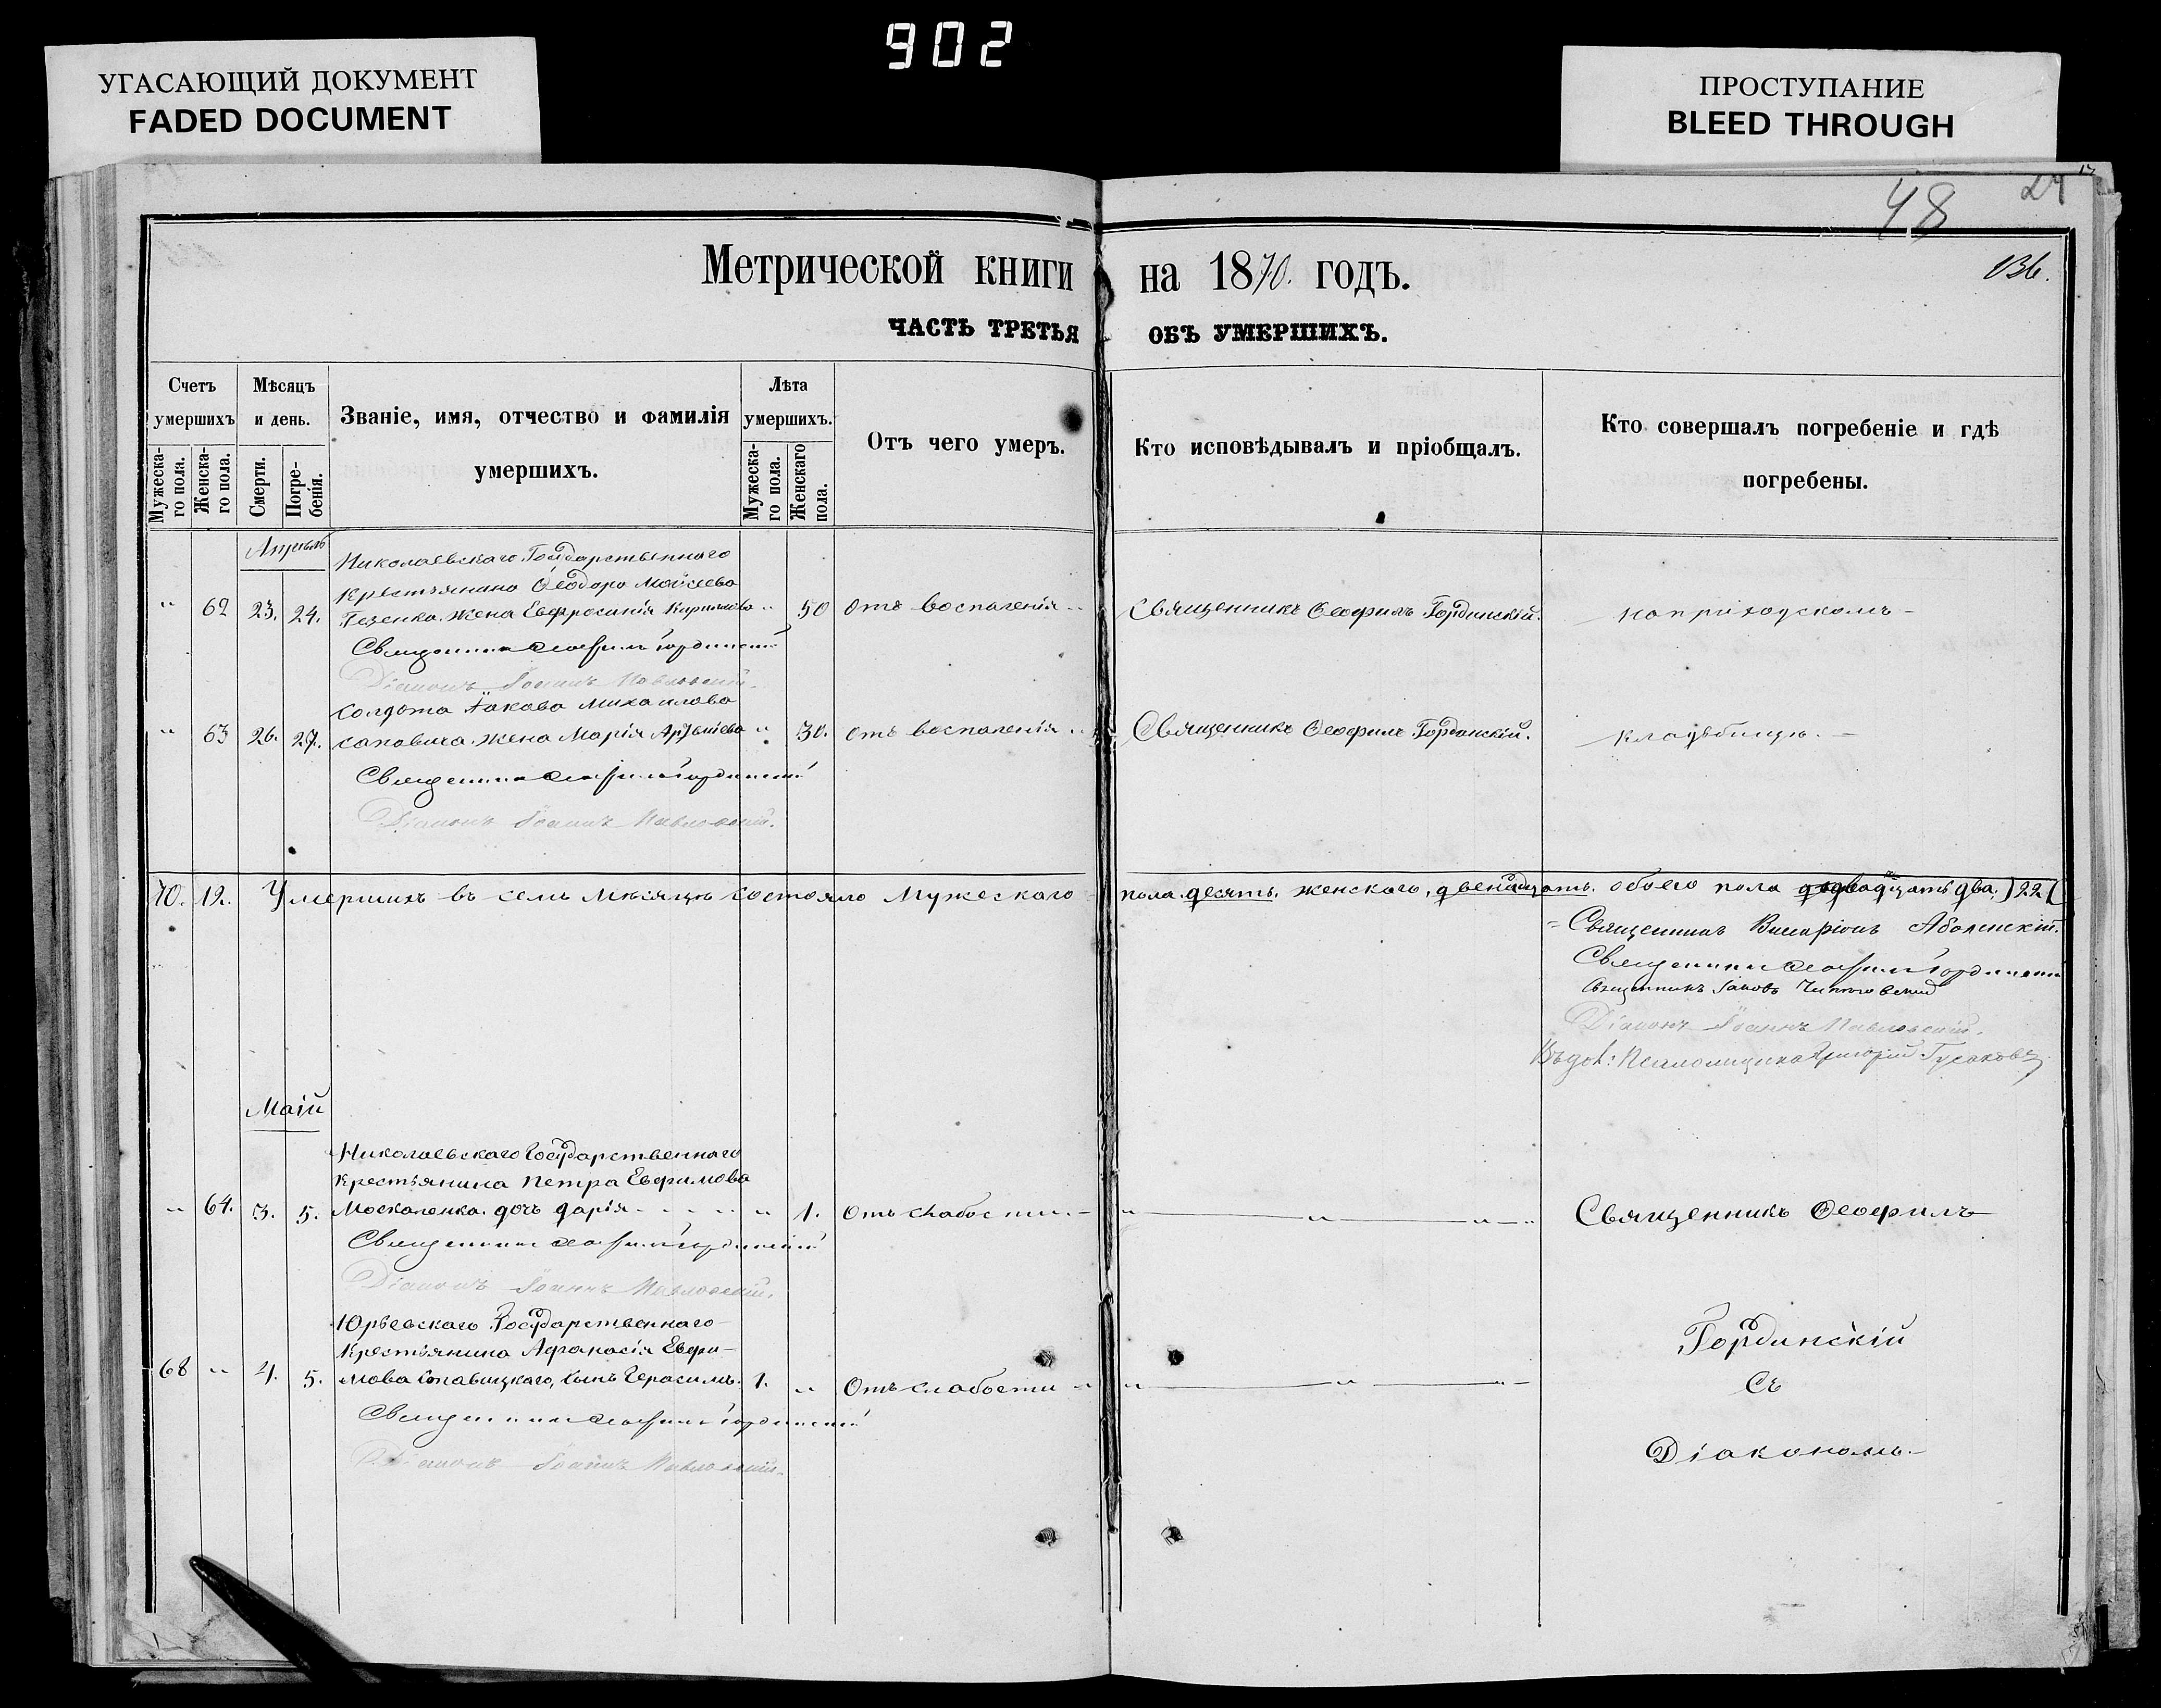 902
УГАСАЮЩИЙ ДОКУМЕНТ
FADED DOCUMENT
ПРОСТУПАНИЕ
BLEED THROUGH
48
136.
Метрической книги на 1870. годъ.
ЧАСТЬ ТРЕТЬЯ ОБЪ УМЕРШИХЪ.
Счетъ умершихъ
Мужеска-го пола.
Женска-го пола.
Мѣсяцъ и день.
Смерти.
Погре-бенія.
Званіе, имя, отчество и фамилія
умершихъ.
Лѣта умершихъ.
Мужеска-го пола.
Женскаго пола.
Отъ чего умеръ.
Кто исповѣдывалъ и пріобщалъ.
Кто совершалъ погребеніе и гдѣ
погребены.
Апрѣль
Николаевскаго Государственнаго
крестьянина Ѳеодора Моисеева
" 62 23. 24. жена Евфросинія " 50 отъ воспаленія Священникъ Ѳеофилъ Гординскій. на приходскомъ
Священникъ Ѳеофилъ Гординскій
Діаконъ Іоаннъ Павловскій.
Солдата Іакова Михаилова
" 63 26. 27. жена Марія " 30. отъ воспаленія Священникъ Ѳеофилъ Гординскій. кладбищѣ.
Священникъ Ѳеофилъ Гординскій
Діаконъ Іоаннъ Павловскій.
10. 12. Умершихъ въ семъ мѣсяцѣ состояло мужескаго пола десять, женскаго, двенадцать. обоего пола двадцать два. )22(
Священникъ
Священникъ Ѳеофилъ Гординскій
Священникъ Іаковъ
Діаконъ Іоаннъ Павловскій.
Григорій Гусаковъ
Маій
Николаевскаго Государственнаго
крестьянина Петра Евфимова
" 64. 3. 5. Москаленка. дочь Дарія " 1. Отъ слабости " " " Священникъ Ѳеофилъ
Священникъ Ѳеофилъ Гординскій
Діаконъ Іоаннъ Павловскій.
Юрьевскаго Государственнаго
крестьянина Афанасія Евфи-
68 " 4. 5. мова сынъ Герасимъ. 1. " Отъ слабости " " "
Гординскій
Съ
Діакономъ
Священникъ Ѳеофилъ Гординскій
Діаконъ Іоаннъ Павловскій.